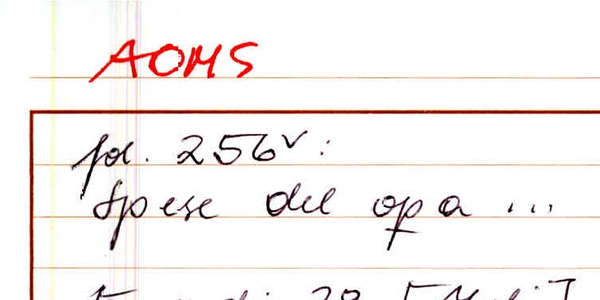 AOMS
fol. 256v:
Spese del opa ...